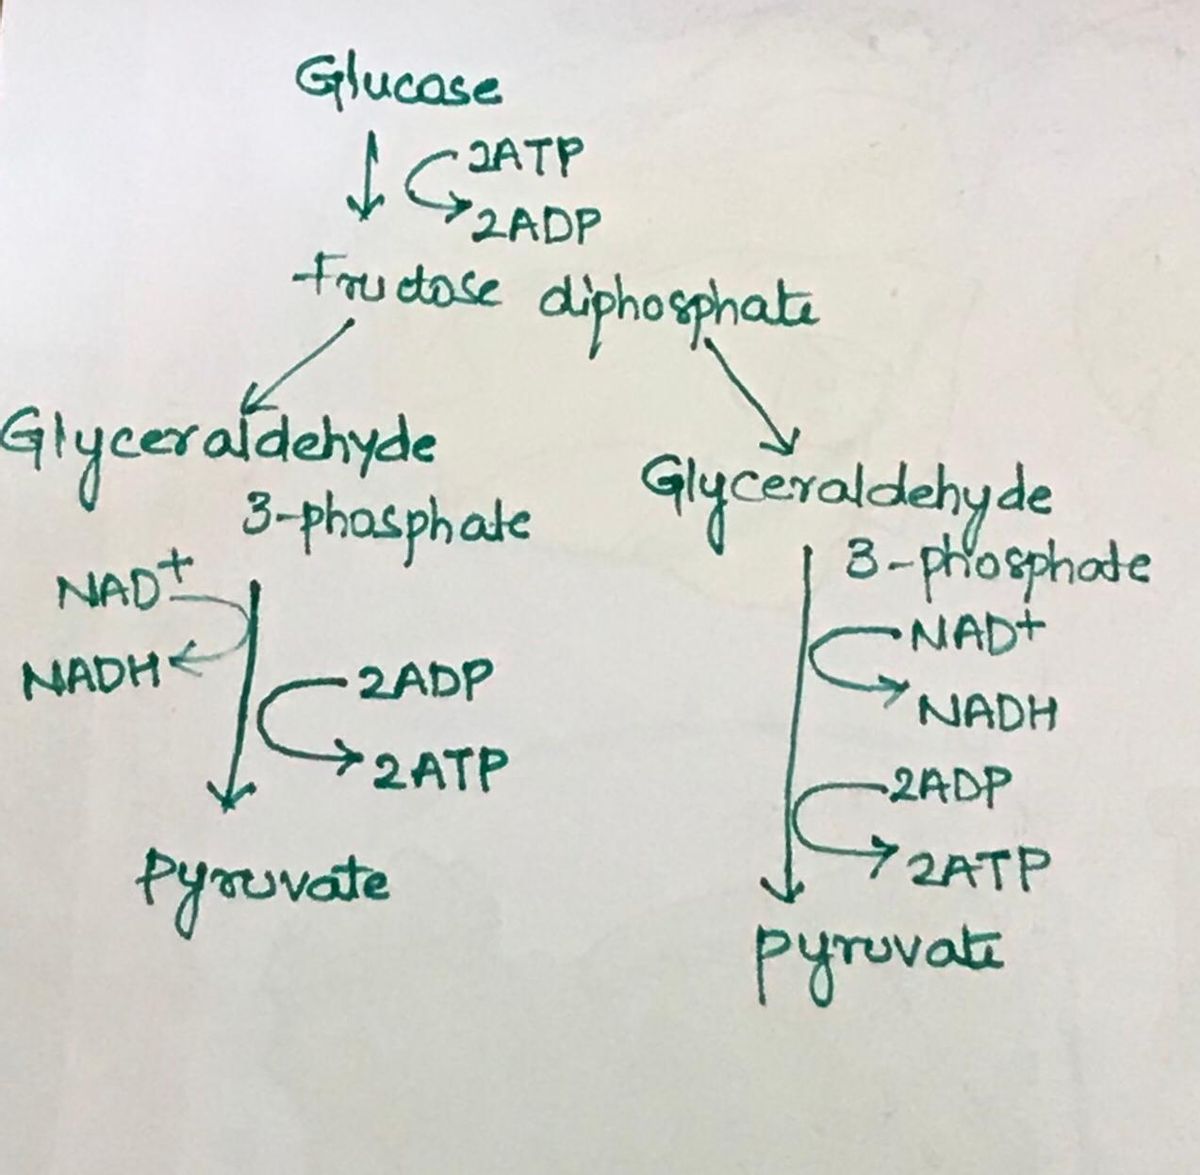 Glucose
2ATP
2ADP
Fructose diphosphate
Glyceraldehyde
3-phosphate
NAD+
NADH
2ADP
2ATP
Pyruvate
Glyceraldehyde
3-phosphate
NAD+
NADH
2ADP
2ATP
pyruvate